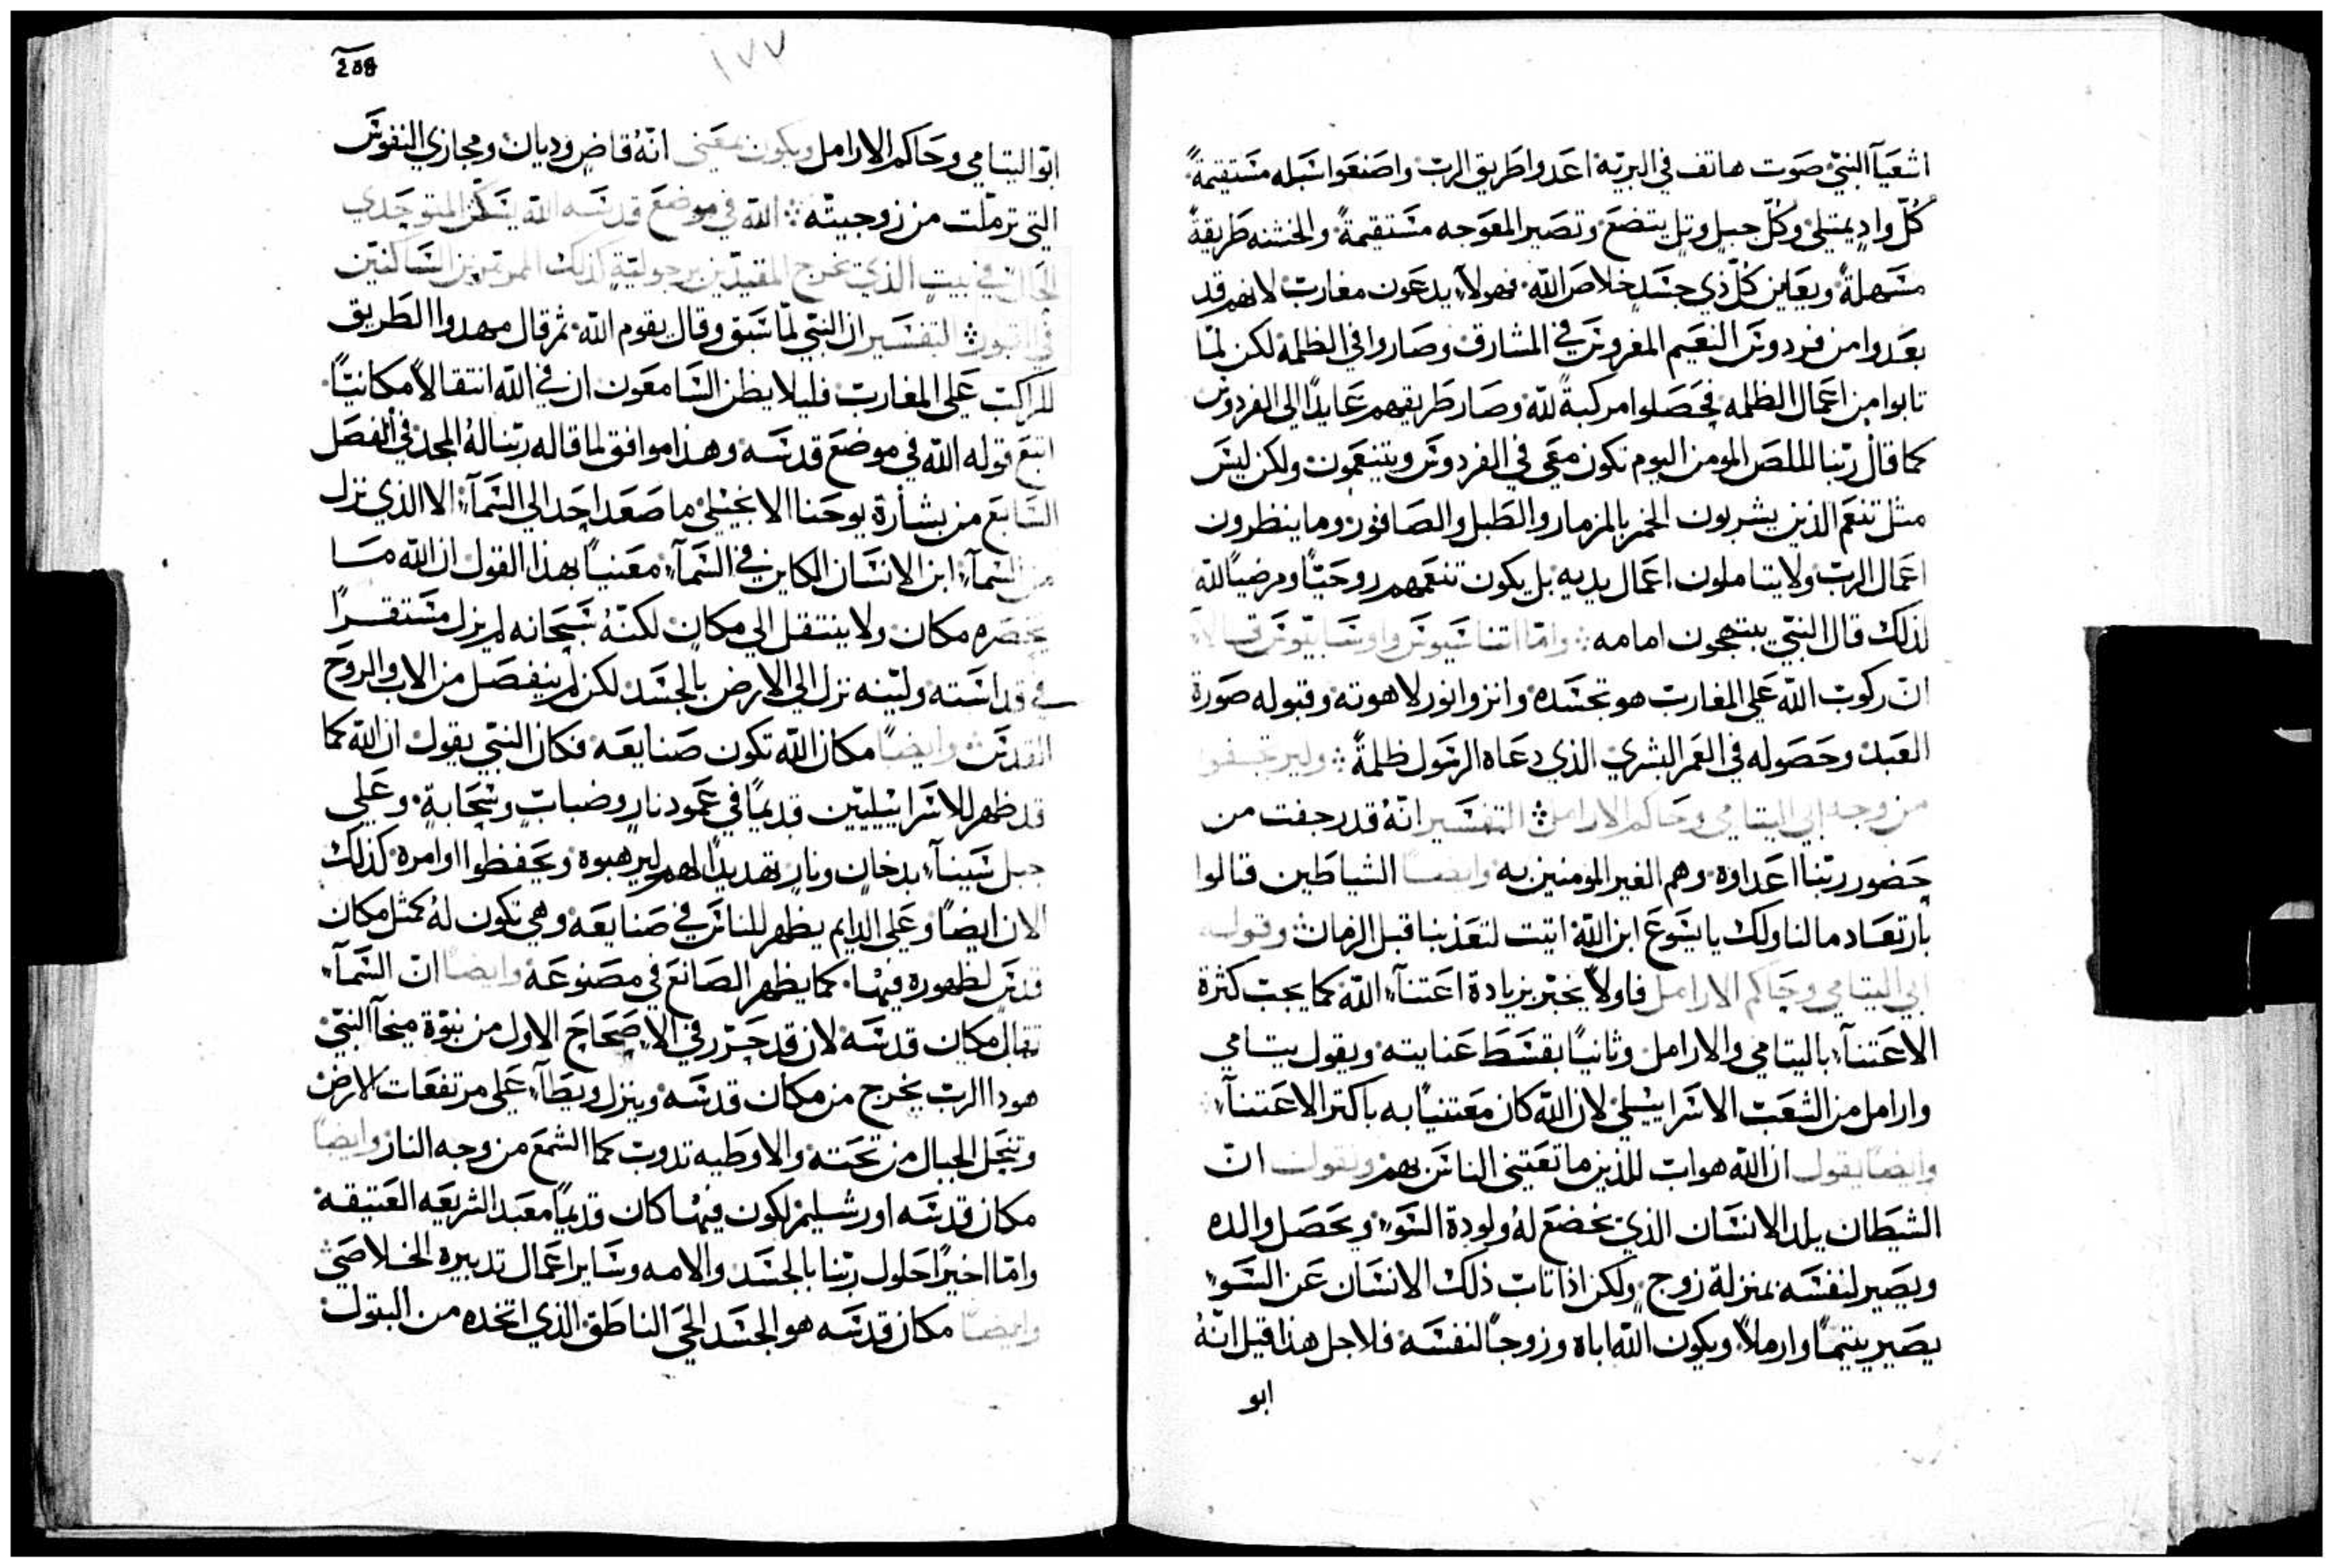 اشعيآ النبيّ صوت هاتف في البريّه اعدوا طريق الرب واصنعوا سبله مستقيمةً
كُلّ وادٍ يمتلي وكُلّ جبلٍ وتلٍ يتضع وتصير المعوجه مستقيمةً والخشنه طريقةً
مسهلةً ويعاين كلّ ذي جسدٍ خلاص الله فهولآء يدعون مغارب لانهم قد
بعدوا من فردوس النعيم المغروس في المشارق وصاروا في الظلمه لكن لمّا
تابوا من اعمال الظلمه فحصلوا مركبةً لله وصار طريقهم عايدًا الى الفردوس
كما قال ربّنا للص المومن اليوم تكون معي في الفردوس ويتنعمون ولكن ليس
مثل تنعم الذين يشربون الخمر بالمزمار والطبل والصافور وما ينظرون
اعمال الرب ولا يتاملون اعمال يديه بل يكون تنعمهم روحيًّا ومرضيًا لله
لذلك قال النبي يبتهجون امامه وامّا اتناسيوس واوسابيوس قالا
انّ ركوب الله على المغارب هو تجسده وانزوا نور لاهوته وقبوله صورة
العبد وحصوله في العمر البشري الذي دعاه الرسول ظلمةً وليرتجفوا
من وجه ابي اليتامي وحاكم الارامل التفسير انّهُ قد رجفت من
حضور ربّنا اعداوه وهم الغير المومنين به وايضًا الشياطين قالوا
بارتعاد ما لنا ولك يا يسوع ابن الله اتيت لتعذبنا قبل الزمان وقوله
ابي اليتامي وحاكم الارامل فاولاً يخبّر بزيادة اعتنآء الله كما يجب كثرة
الاعتنآء باليتامي والارامل وثانيًا بقسط عنايته ويقول يتامي
وارامل من الشعب الاسراييلي لان الله كان معتنيًا به باكثر الاعتنآء
وايضًا يقول ان الله هو اب للذين ما تعتني الناس بهم ونقول انّ
الشيطان يلد الانسان الذي يخضع لهُ ولودة السَّوء ويحصل والده
ويصير لنفسه بمنزلة زوجٍ ولكن اذا تاب ذلك الانسان عن السَّوء
يصير يتيمًا وارملاً ويكون الله اباه وزوجًا لنفسه فلاجل هذا قيل انّهُ
ابو
208
١٧٧
ابو اليتامي وحاكم الارامل ويكون بمعني انّهُ قاضٍ وديان ومجازي النفوس
التي ترمّلت من زوجيتّه الله في موضع قدسه الله يسكن المتوحدي
الحال في بيتٍ الذي يخرج المقيدين برجوليةٍ كذلك المرتمرين الساكنين
في القبور التفسير ان النبيّ لمّا سبق وقال يقوم الله ثم قال مهدوا الطريق
للراكب على المغارب فليلا يظن السامعون ان في الله انتقالاً مكانيًّا
اتبع قوله الله في موضع قدسه وهذا موافق لما قاله ربّنا لهُ المجد في الفصل
السابع من بشارة يوحنا الانجيلي ما صعد احد الي السمآء الا الذي نزل
من السمآء ابن الانسان الكاين في السمآء معنيًا بهذا القول ان الله ما
يحصره مكان ولا ينتقل الي مكانٍ لكنّهُ سبحانه لم يزل مستقرًا
في قداسته ولينه نزل الي الارض بالجسد لكن لم ينفصل من الاب والروح
القدس وايضًا مكان الله تكون صنايعه فكان النبي يقول ان الله كما
قد ظهر للاسراييليين قديمًا في عمود نارٍ وضبابٍ وسحابةٍ وعلى
جبل سينآء بدخانٍ ونارٍ تهديدًا لهم ليرهبوه ويحفظوا اوامره كذلك
الان ايضًا وعلى الدايم يظهر للناس في صنايعه وهي تكون لهُ كمثل مكان
قدس لظهوره فيها كما يظهر الصانع في مصنوعه وايضًا انّ السمآء
تقال مكان قدسه لان قد حرّر في الاصحاح الاول من نبوّة ميخآ النبيّ
هوذا الرب يخرج من مكان قدسه وينزل ويطآء على مرتفعات الارض
وتنحل الجبال من تحته والاوطيه تذوب كما الشمع من وجه النار وايضًا
مكان قدسه اورشليم لكون فيها كان قديمًا معبد الشريعه العتيقه
وامّا اخيرًا حلول ربّنا بالجسد والامه وساير اعمال تدبيره الخلاصي
وايضًا مكان قدسه هو الجسد الحي الناطق الذي اتخذه من البتول